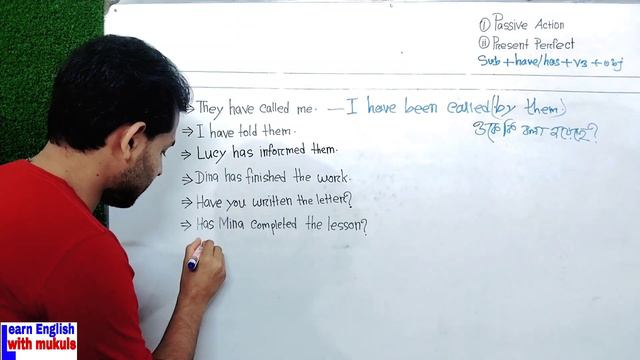 ① Passive Action
② Present Perfect
Sub + have/has + V3 + obj
⇒ They have called me. — I have been called (by them)
ওকে কি বলা হয়েছে?
⇒ I have told them.
⇒ Lucy has informed them.
⇒ Dina has finished the work.
⇒ Have you written the letter?
⇒ Has Mina completed the lesson?
⇒
Learn English
with mukuls